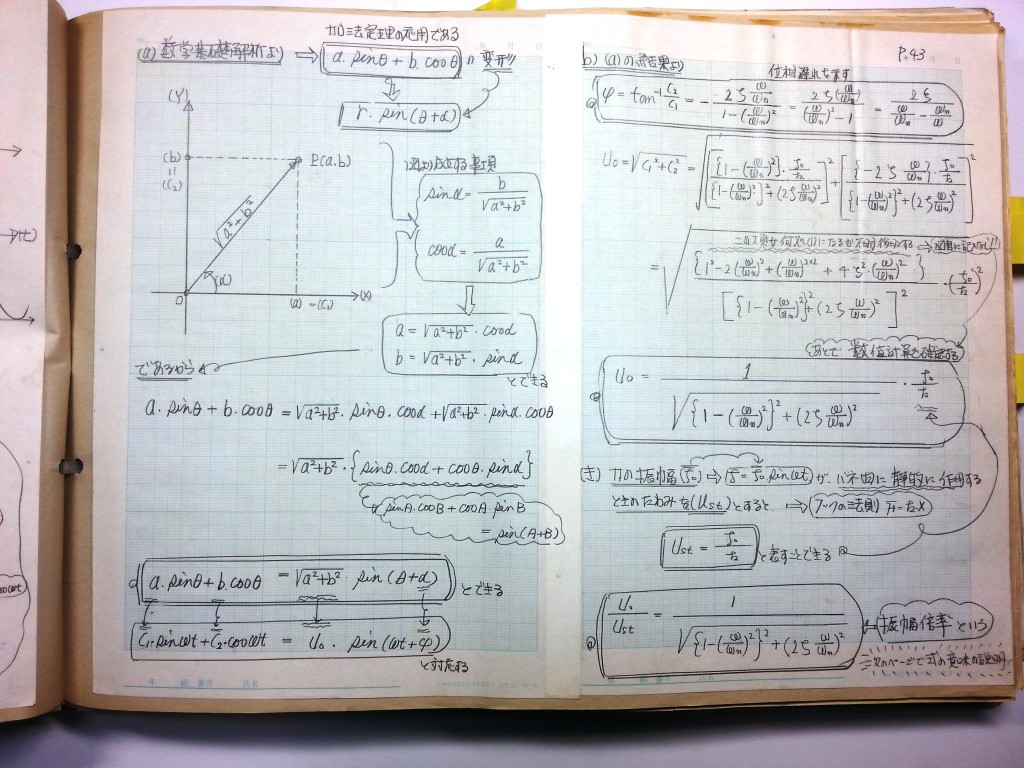 加法定理の応用である
(a) 数学基礎解析より → a・sinθ + b・cosθ の "変形"
r・sin(θ+α)
(Y)
(b)
=
(C₂)
P(a.b)
√a²+b²
(α)
0
(a) = (C₁)
(X)
図より成立する事項
sinα = b/√a²+b²
cosα = a/√a²+b²
a = √a²+b²・cosα
b = √a²+b²・sinα
とできる
であるから
a・sinθ + b・cosθ = √a²+b²・sinθ・cosα + √a²+b²・sinα・cosθ
= √a²+b²・{sinθ・cosα + cosθ・sinα}
sinA・cosB + cosA・sinB
= sin(A+B)
a・sinθ + b・cosθ = √a²+b² sin(θ+α) とできる
C₁・sinωt + C₂・cosωt = U₀・sin(ωt+φ)
と対応する
年 組 番号 氏名
P.43
b) (a)の結果より
位相遅れを表す
φ = tan⁻¹ C₂/C₁ = - 2ζ ω/ωn / 1-(ω/ωn)² = 2ζ(ω/ωn) / (ω/ωn)²-1 = 2ζ / ω/ωn - ωn/ω
U₀ = √C₁²+C₂² = √[{1-(ω/ωn)²}・f₀/k / {1-(ω/ωn)²}²+(2ζ ω/ωn)²]² + [{-2ζ ω/ωn}・f₀/k / {1-(ω/ωn)²}²+(2ζ ω/ωn)²]²
= √{1²-2(ω/ωn)²+(ω/ωn)²ˣ²+4ζ²・(ω/ωn)²} / [{1-(ω/ωn)²}²+(2ζ ω/ωn)²]² ・(f₀/k)²
あとで数値計算で確認する
U₀ = 1 / √{1-(ω/ωn)²}²+(2ζ ω/ωn)² ・ f₀/k
力の振幅(f₀) → f=f₀・sinωt が、バネ由に静的に作用する
ときのたわみを(Ust)とすると → フックの法則 F=k・x
Ust = f₀/k と表すことできる
U₀/Ust = 1 / √{1-(ω/ωn)²}²+(2ζ ω/ωn)² ← 振幅倍率という
次のページで式の意味の説明